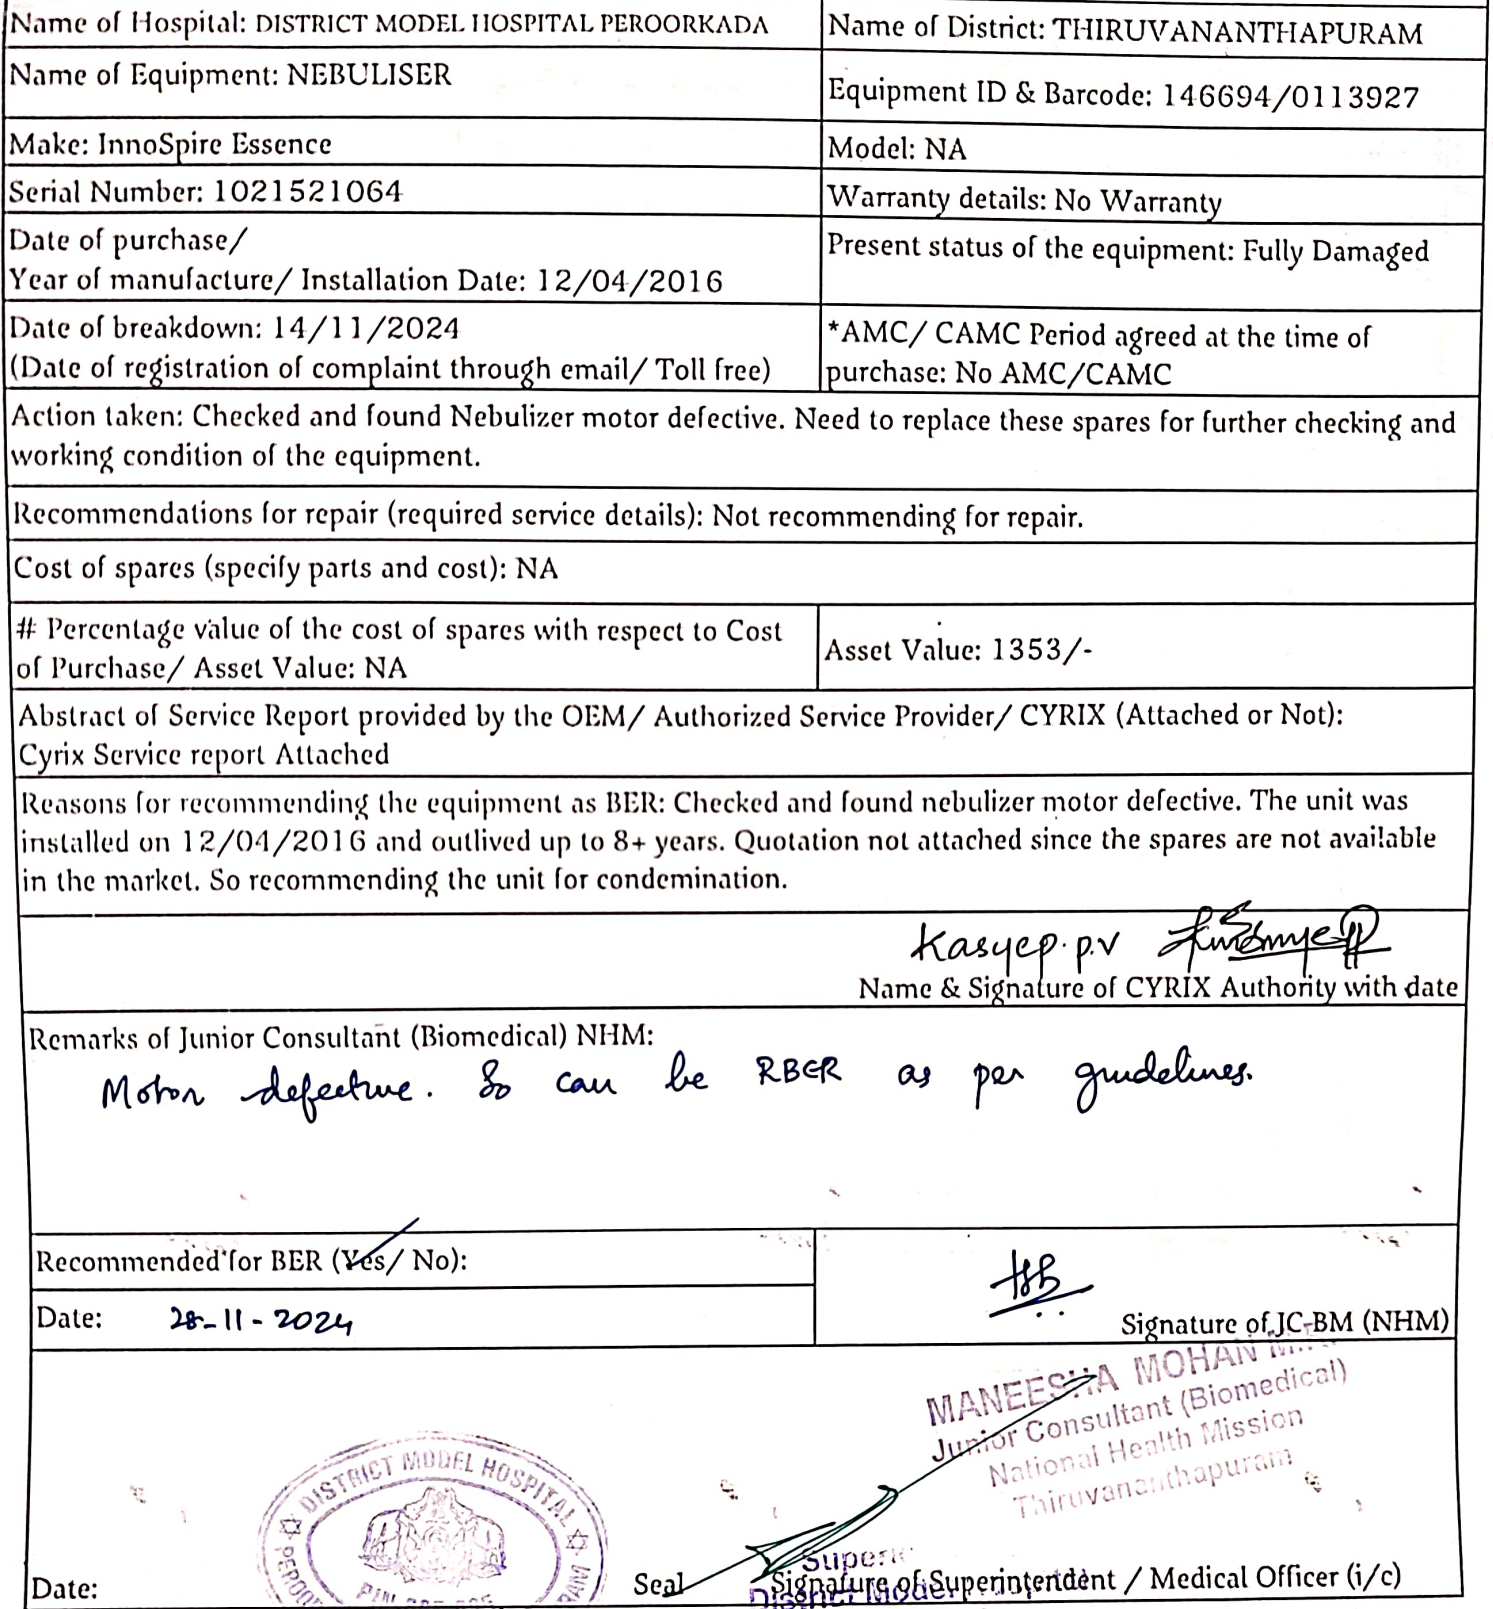 Name of Hospital: DISTRICT MODEL HOSPITAL PEROORKADA
Name of District: THIRUVANANTHAPURAM
Name of Equipment: NEBULISER
Equipment ID & Barcode: 146694/0113927
Make: InnoSpire Essence
Model: NA
Serial Number: 1021521064
Warranty details: No Warranty
Date of purchase/
Year of manufacture/ Installation Date: 12/04/2016
Present status of the equipment: Fully Damaged
Date of breakdown: 14/11/2024
(Date of registration of complaint through email/ Toll free)
*AMC/ CAMC Period agreed at the time of
purchase: No AMC/CAMC
Action taken: Checked and found Nebulizer motor defective. Need to replace these spares for further checking and
working condition of the equipment.
Recommendations for repair (required service details): Not recommending for repair.
Cost of spares (specify parts and cost): NA
# Percentage value of the cost of spares with respect to Cost
of Purchase/ Asset Value: NA
Asset Value: 1353/-
Abstract of Service Report provided by the OEM/ Authorized Service Provider/ CYRIX (Attached or Not):
Cyrix Service report Attached
Reasons for recommending the equipment as BER: Checked and found nebulizer motor defective. The unit was
installed on 12/04/2016 and outlived up to 8+ years. Quotation not attached since the spares are not available
in the market. So recommending the unit for condemination.
Kasyep. p.v
Name & Signature of CYRIX Authority with date
Remarks of Junior Consultant (Biomedical) NHM:
Motor defective. So can be RBER as per guidelines.
Recommended for BER (Yes/ No):
Date: 28-11-2024
Signature of JC-BM (NHM)
MANEESHA MOHAN
Junior Consultant (Biomedical)
National Health Mission
Thiruvananthapuram
DISTRICT MODEL HOSPITAL
Date:
Seal
Signature of Superintendent / Medical Officer (i/c)